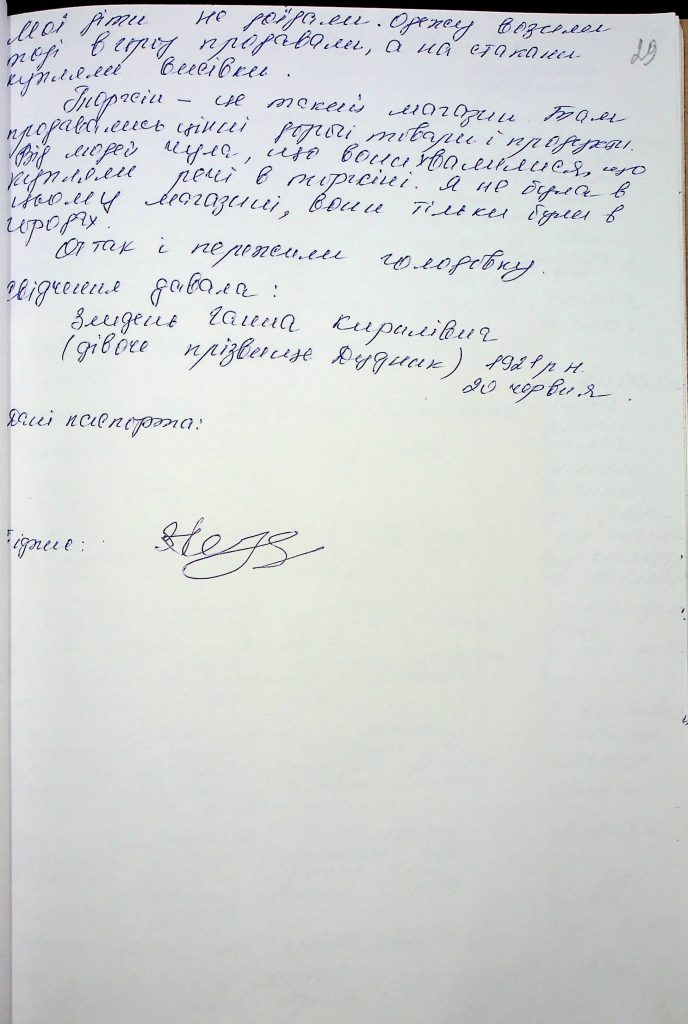 Мої діти не доїдали. Одежу возили
тоді в город продавали, а на стакани
купляли висівки.
29
Торгсін – це такий магазин. Там
продавались цінні дорогі товари і продукти.
Від людей чула, що вони хвалилися, що
купляли речі в торгсіні. Я не була в
цьому магазині, вони тільки були в
городах.
Отак і пережили голодовку.
свідчення давала:
Злидень Ганна Кирилівна
(дівоче прізвище Дудник) 1921 р н.
20 червня.
Дані паспорта:
Підпис: